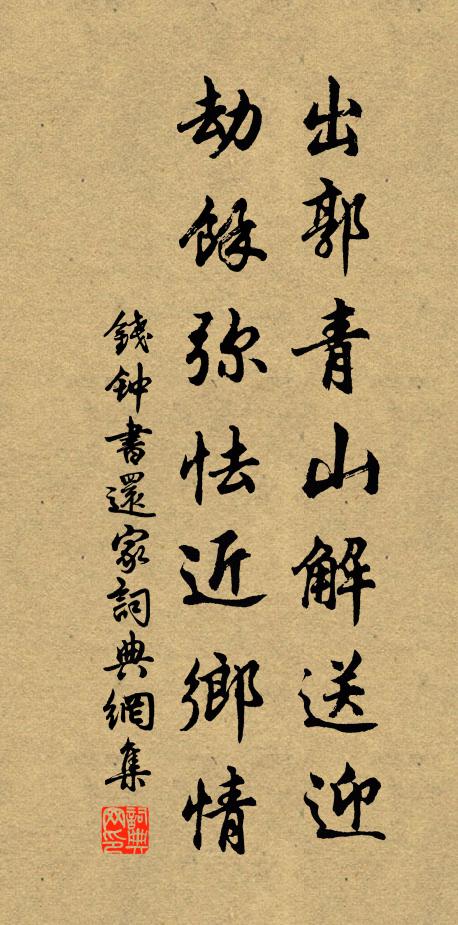 出郭青山解送迎
劫餘弥怯近鄉情
錢钟書還家詞典網集
詞典
网印